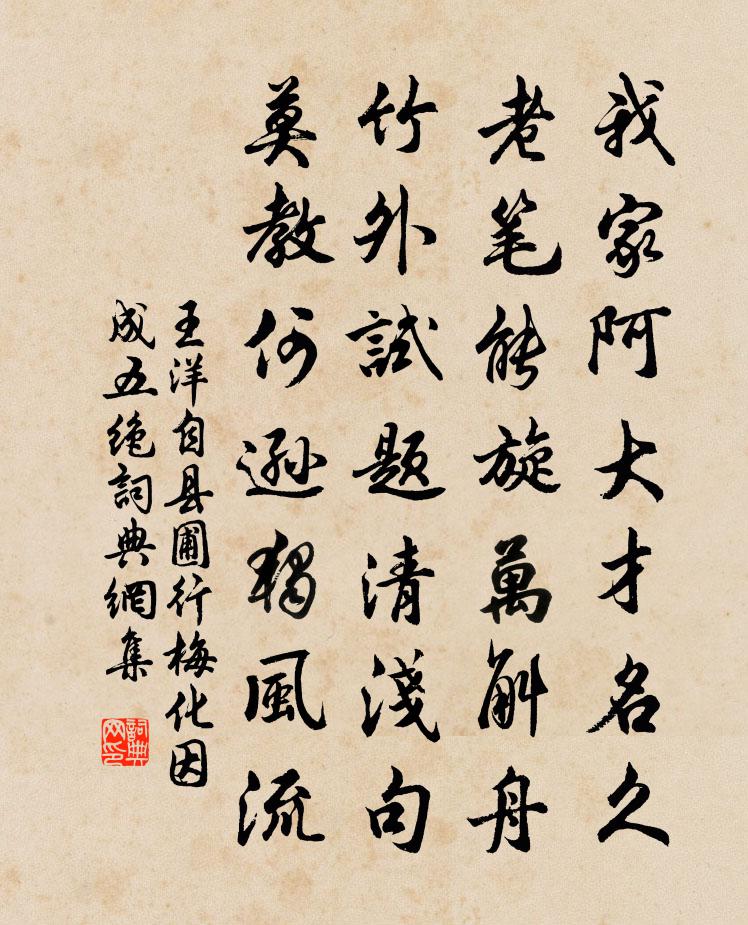 我家阿大才名久
老笔能旋萬斛舟
竹外試题清淺句
莫教何遜獨風流
王洋自县圃行梅化因
成五绝詞典網集
詞典網印